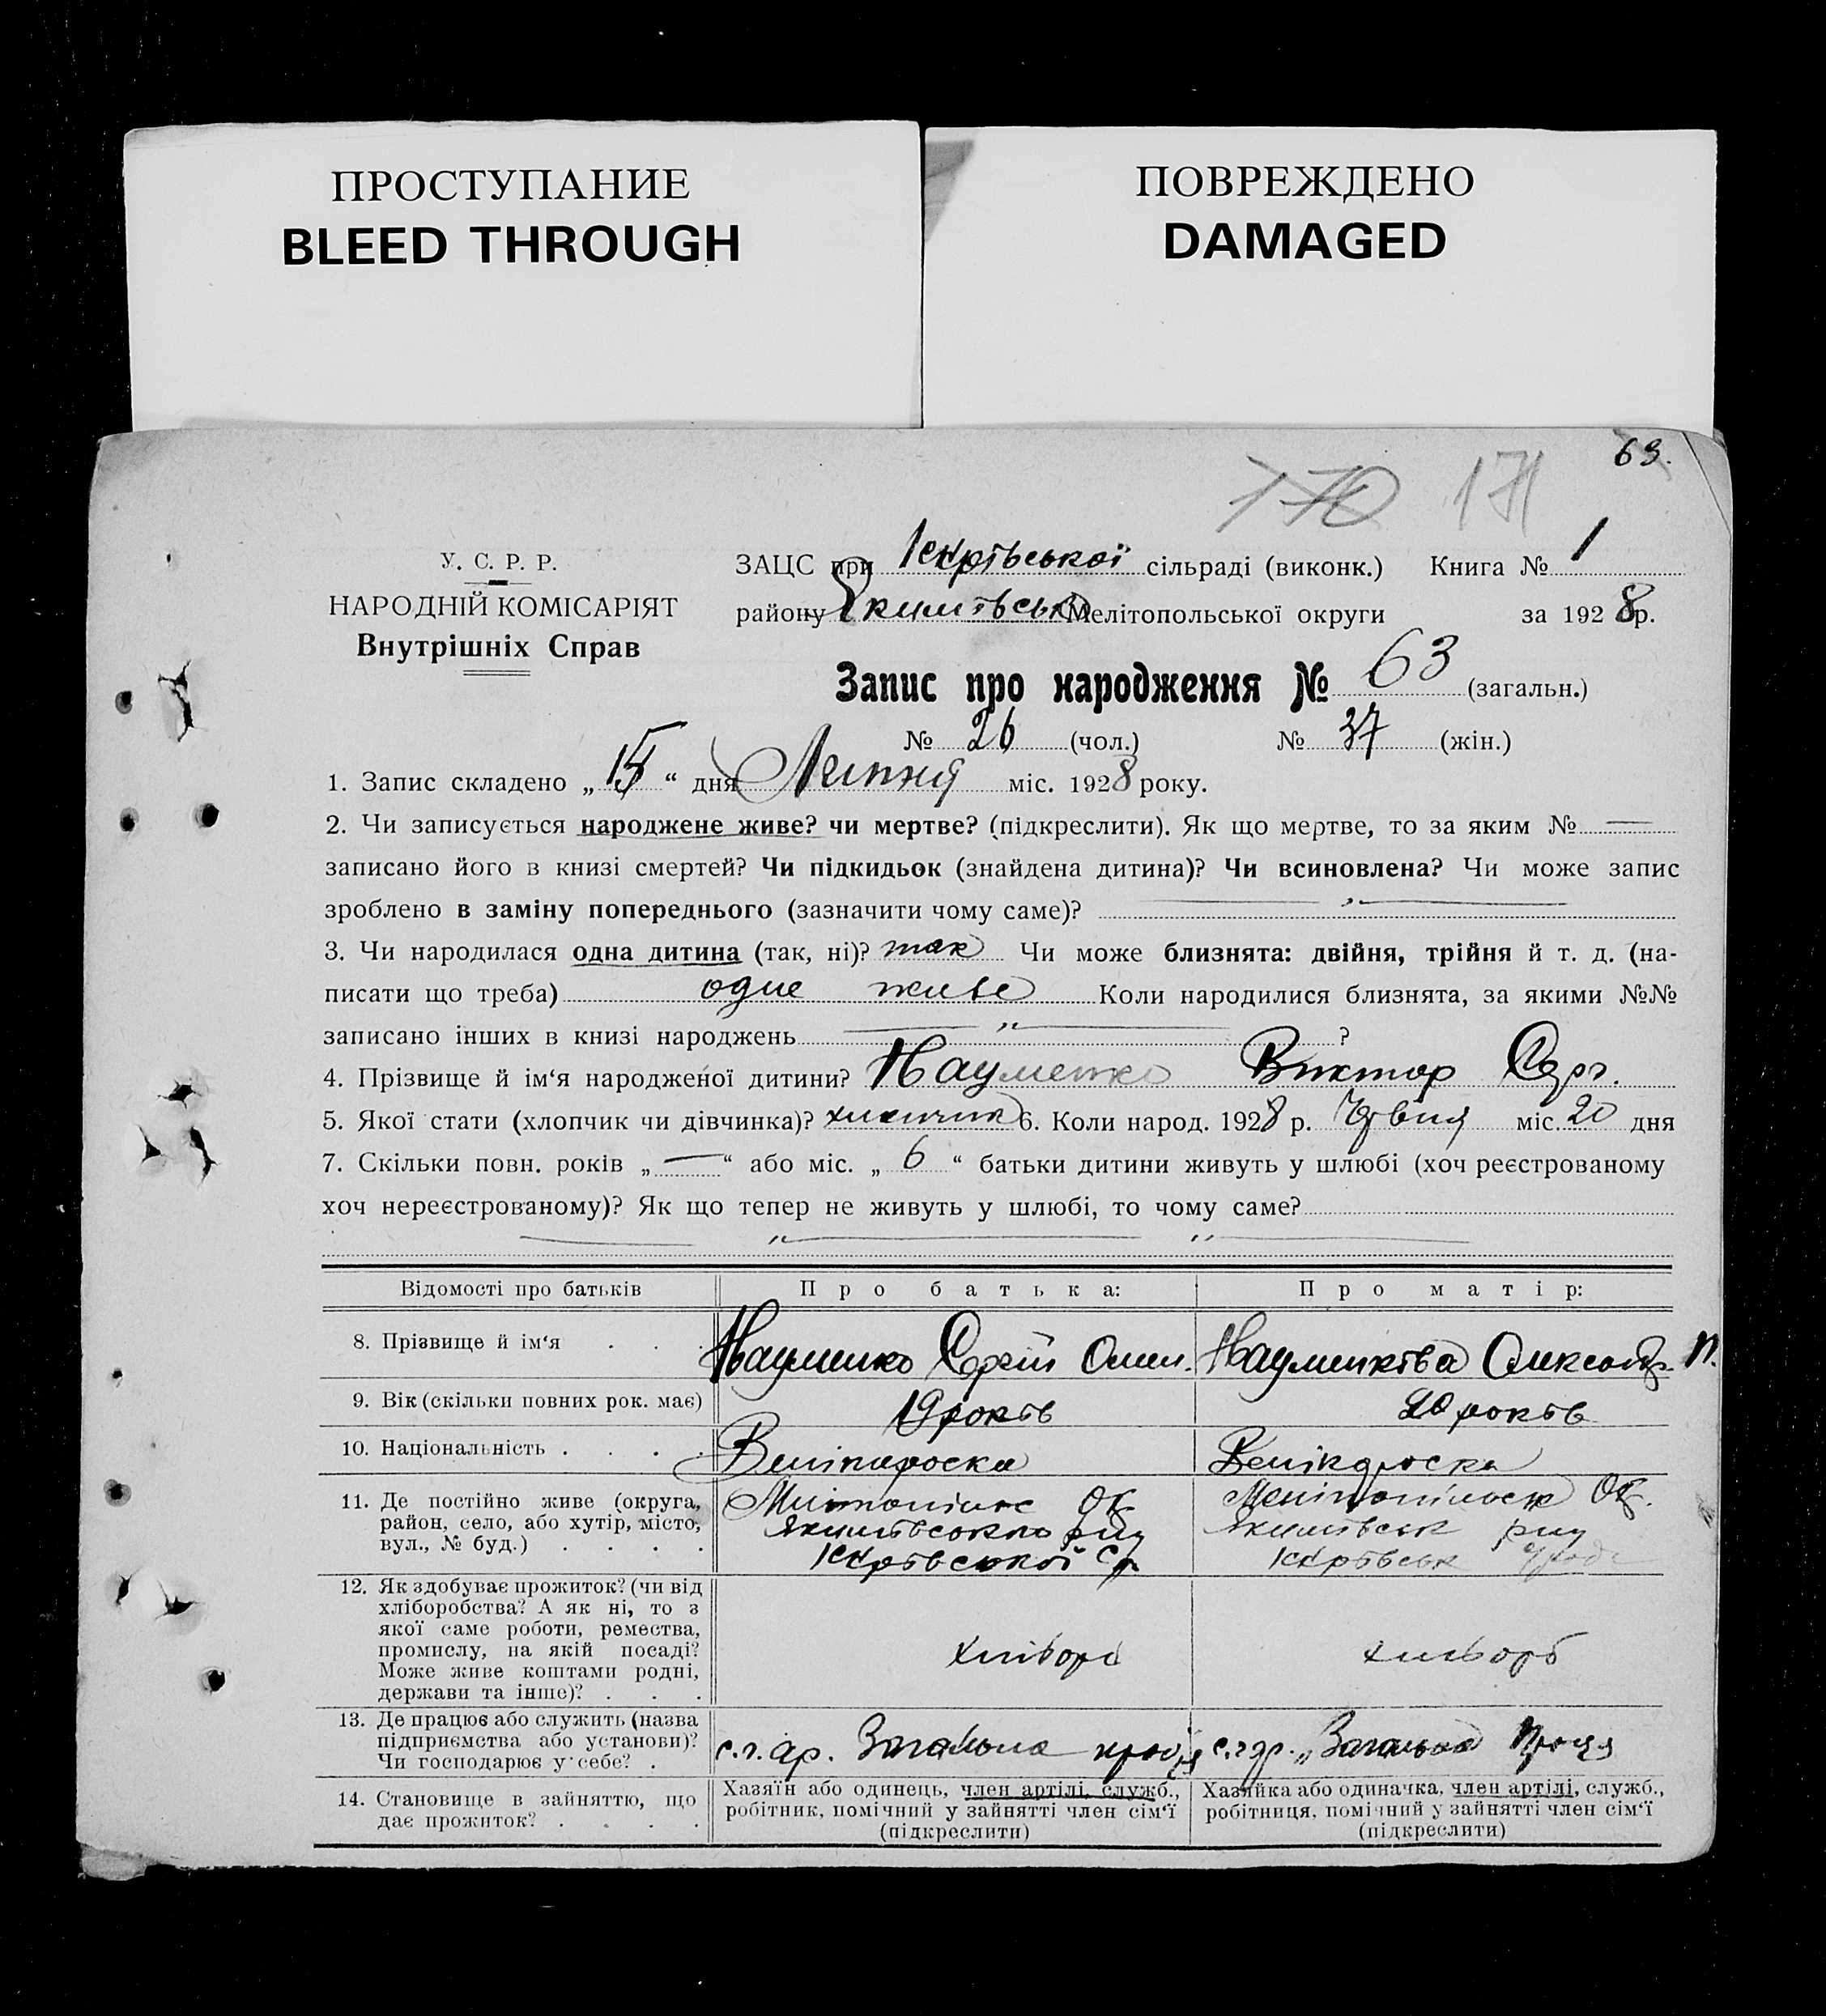 ПРОСТУПАНИЕ
BLEED THROUGH
ПОВРЕЖДЕНО
DAMAGED
63.
170 171
У. С. Р. Р.
НАРОДНІЙ КОМІСАРІЯТ
Внутрішніх Справ
ЗАЦС при сільраді (виконк.) Книга № 1
району Якимівськ Мелітопольської округи за 1928 р.
Запис про народження № 63 (загальн.)
№ 26 (чол.) № 37 (жін.)
1. Запис складено „ 15 “ дня Липня міс. 1928 року.
2. Чи записується народжене живе? чи мертве? (підкреслити). Як що мертве, то за яким № —
записано його в книзі смертей? Чи підкидьок (знайдена дитина)? Чи всиновлена? Чи може запис
зроблено в заміну попереднього (зазначити чому саме)?
3. Чи народилася одна дитина (так, ні)? так Чи може близнята: двійня, трійня й т. д. (на-
писати що треба) одне живе Коли народилися близнята, за якими №№
записано інших в книзі народжень — „ — ?
4. Прізвище й ім‘я народженої дитини? Науменко Виктор Серг.
5. Якої стати (хлопчик чи дівчинка)? хлопчик 6. Коли народ. 1928 р. Червня міс. 20 дня
7. Скільки повн. років „ — “ або міс. „ 6 “ батьки дитини живуть у шлюбі (хоч реєстрованому
хоч нереєстрованому)? Як що тепер не живуть у шлюбі, то чому саме?
Відомості про батьків Про батька: Про матір:
8. Прізвище й ім‘я Науменко Сергій Омел. Науменкова Олександр. П.
9. Вік (скільки повних рок. має) 19 років 20 років
10. Національність Велікороска Велікороска
11. Де постійно живе (округа,
район, село, або хутір, місто,
вул., № буд.)
Мелітопільс Ок.
Якимівського р-ну
Мелітопільськ Ок.
Якимівськ р-ну
12. Як здобуває прожиток? (чи від
хліборобства? А як ні, то з
якої саме роботи, ремества,
промислу, на якій посаді?
Може живе коштами родні,
держави та інше)?
хлібороб хлібороб
13. Де працює або служить (назва
підприємства або установи)?
Чи господарює у себе?
с.г. ар. Загальна праця с.г ар. „Загальна Праця
14. Становище в зайняттю, що
дає прожиток?
Хазяїн або одинець, член артілі, служб.,
робітник, помічний у зайнятті член сім‘ї
(підкреслити)
Хазяйка або одиначка, член артілі, служб.,
робітниця, помічний у зайнятті член сім‘ї
(підкреслити)